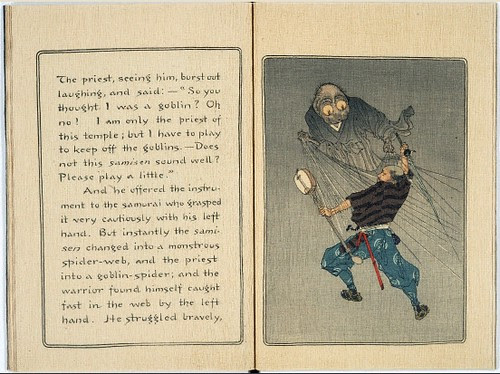 The priest, seeing him, burst out
laughing, and said:—"So you
thought I was a goblin? Oh
no! I am only the priest of
this temple; but I have to play
to keep off the goblins.—Does
not this samisen sound well?
Please play a little."
And he offered the instru-
ment to the samurai who grasped
it very cautiously with his left
hand. But instantly the sami-
sen changed into a monstrous
spider-web, and the priest
into a goblin-spider; and the
warrior found himself caught
fast in the web by the left
hand. He struggled bravely,